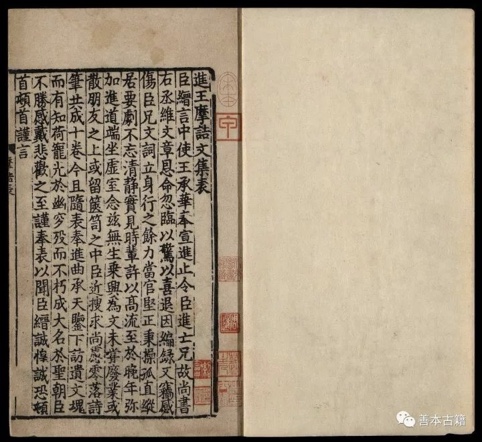 宋本
甲
進王摩詰文集表
臣縉言中使王承華奉宣進止令臣進亡兄故尚書
右丞維文章恩命忽臨以驚以喜退因編録又竊感
傷臣兄文詞立身行之餘力當官堅正秉操孤直縱
居要劇不忘清静實見時輩許以高流至於晚年弥
加進道端坐虚室念兹無生乗興為文未甞廢業或
散朋友之上或留篋笥之中臣近搜求尚慮零落詩
筆共成十卷今且隨表奉進曲承天鑒下訪遺文魂
而有知荷寵光於幽穸歿而不朽成大名於聖朝臣
不勝感戴悲歡之至謹奉表以聞臣縉誠惶誠恐頓
首頓首謹言
善本古籍